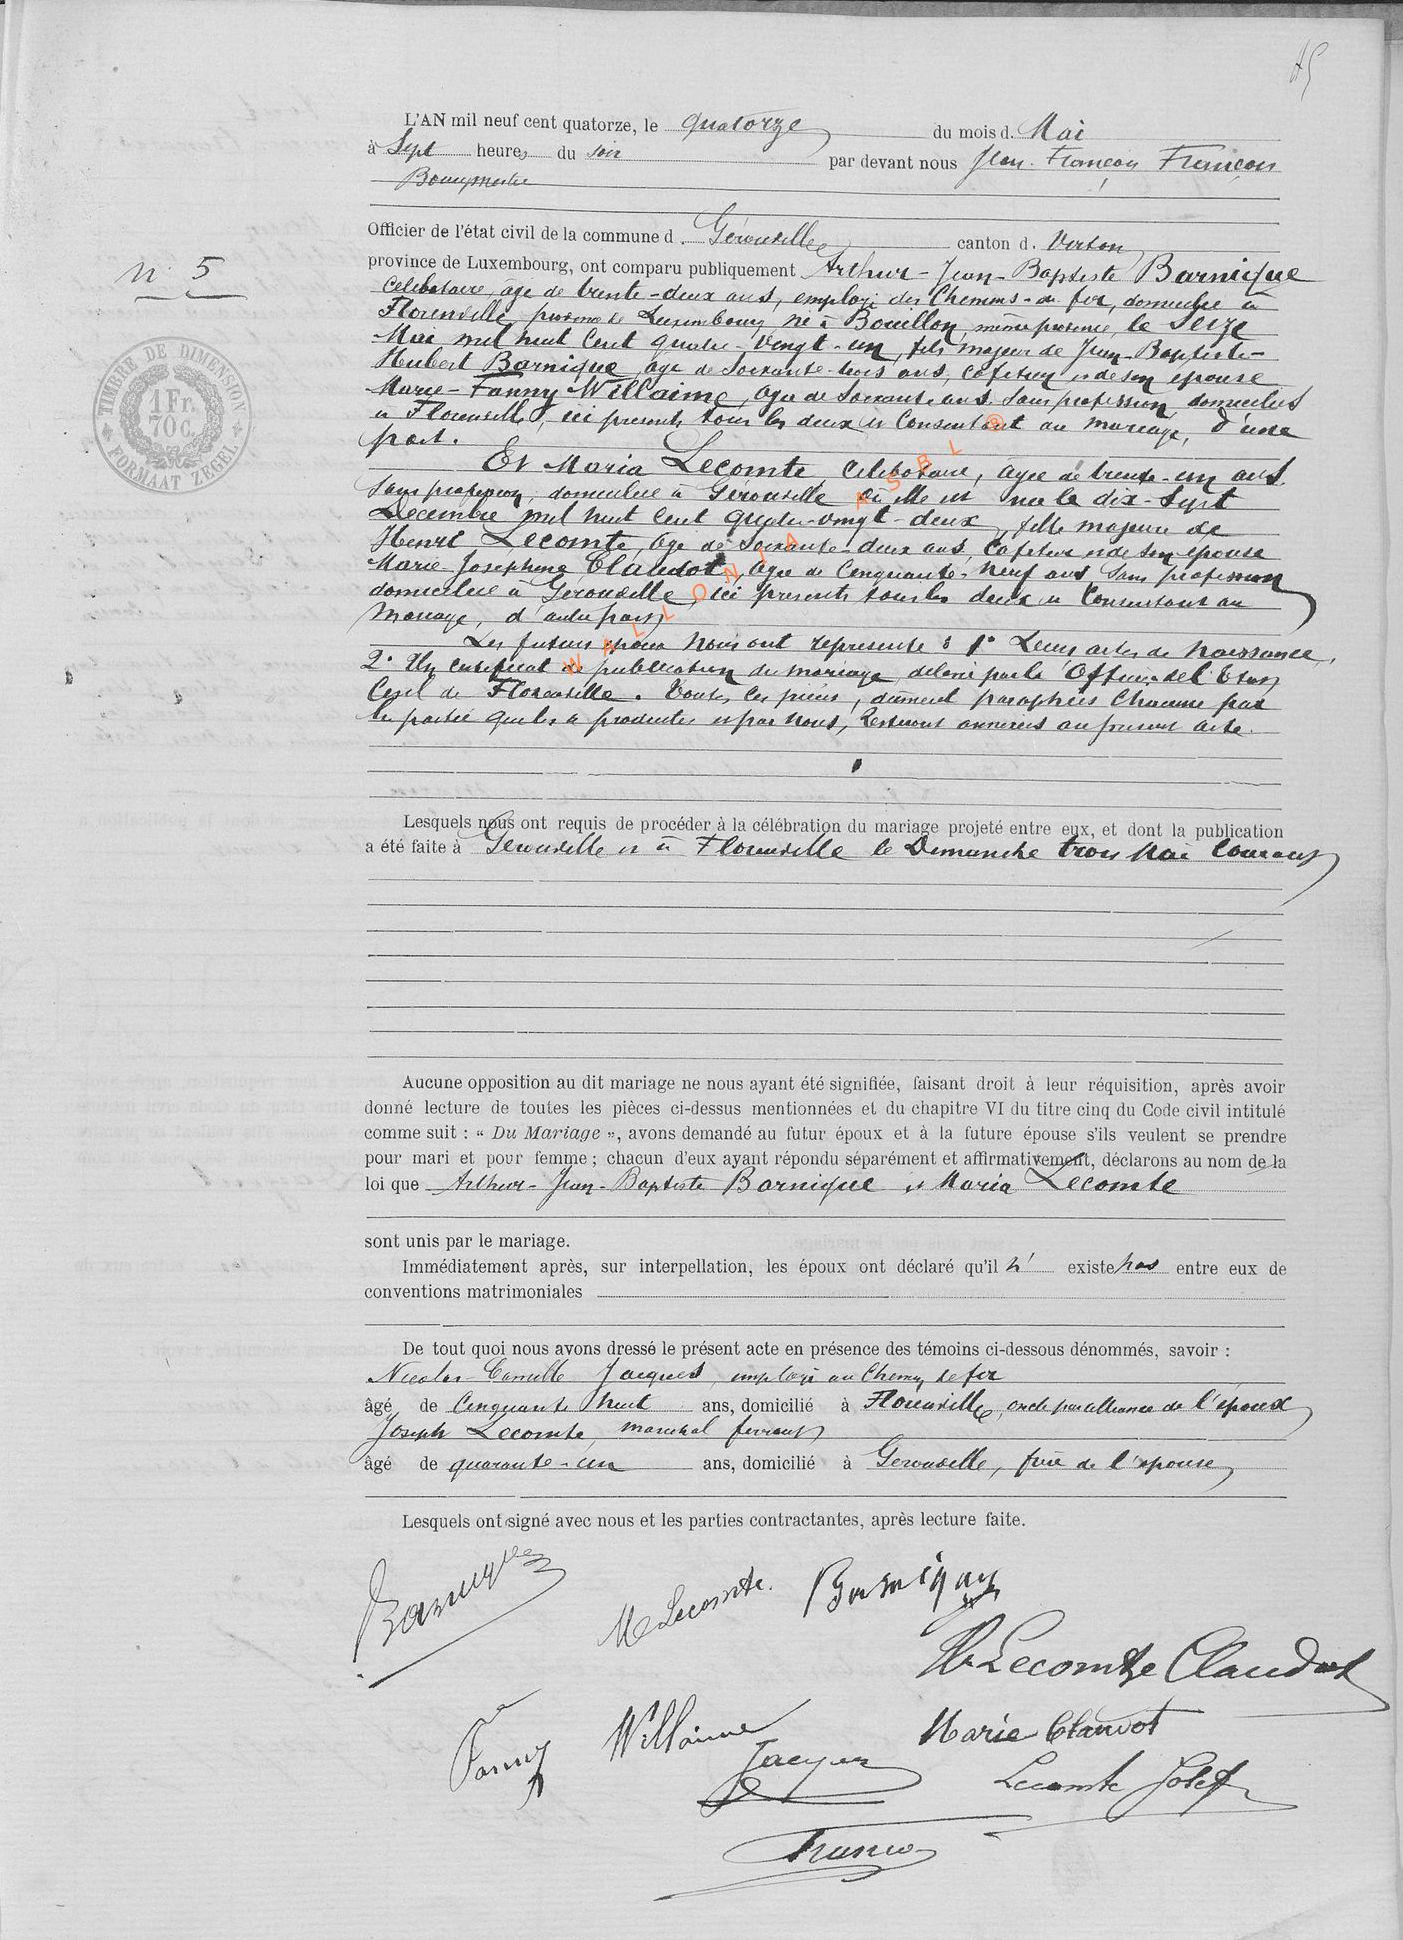 L'AN mil neuf cent quatorze, le quatorze du mois d. Mai
à Sept heures du soir par devant nous Jean-François François
Bourgmestre
Officier de l'état civil de la commune d. Gérouville canton d. Virton
N° 5
province de Luxembourg, ont comparu publiquement Arthur-Jean-Baptiste Barnique
célibataire, age de trente-deux ans, employé des Chemins-de fer, domicilie à
Florenville province de Luxembourg, né à Bouillon, même province, le Seize
Mai mil huit Cent quatre-vingt-un, fils majeur de Jean-Baptiste-
Hubert Barnique, age de Soixante-trois ans, cafetier et de son epouse
Marie-Fanny Willaime, agee de Soixante ans, Sans profession, domicilies
à Florenville, ici presents tous les deux et Consentant au mariage, d'une
part.
TIMBRE DE DIMENSION
1 Fr. 70 C.
FORMAAT ZEGEL
Et Maria Lecomte, Celibataire, agee de trente-un ans,
Sans profession, domiciliee à Gérouville où elle est nee le dix-Sept
Decembre mil huit Cent quatre-vingt-deux, fille majeure de
Henri Lecomte, age de Soixante-deux ans, Cafetier et de son epouse
Marie-Josephine Claudot, agee de Cinquante-neuf ans, Sans profession
domicilies à Gerouville, ici presents tous les deux et Consentant au
Mariage, d'autre part
WALLONIA ASBL ®
Les futurs epoux Nous ont represente : 1° Leurs actes de Naissance,
2° Un certificat de publication de mariage délivré par le Officier de l'Etat
Civil de Florenville. Toutes ces pièces, dûment paraphées Chacune par
la partie qui les a produites et par nous, Resteront annexées au présent acte.
Lesquels nous ont requis de procéder à la célébration du mariage projeté entre eux, et dont la publication
a été faite à Gerouville et à Florenville le Dimanche trois Mai Courant
Aucune opposition au dit mariage ne nous ayant été signifiée, faisant droit à leur réquisition, après avoir
donné lecture de toutes les pièces ci-dessus mentionnées et du chapitre VI du titre cinq du Code civil intitulé
comme suit : « Du Mariage », avons demandé au futur époux et à la future épouse s'ils veulent se prendre
pour mari et pour femme ; chacun d'eux ayant répondu séparément et affirmativement, déclarons au nom de la
loi que Arthur-Jean-Baptiste Barnique et Maria Lecomte
sont unis par le mariage.
Immédiatement après, sur interpellation, les époux ont déclaré qu'il n' existe pas entre eux de
conventions matrimoniales
De tout quoi nous avons dressé le présent acte en présence des témoins ci-dessous dénommés, savoir :
Nicolas-Camille Jacques, employé au Chemin de fer
âgé de Cinquante huit ans, domicilié à Florenville, oncle par alliance de l'époux
Joseph Lecomte, marechal ferrant
âgé de quarante-un ans, domicilié à Gerouville, frère de l'epouse
Lesquels ont signé avec nous et les parties contractantes, après lecture faite.
Barnique
M Lecomte. Barnique
H Lecomte Claudot
Fanny Willaime
Marie Claudot
Jacques
Lecomte Josef
François